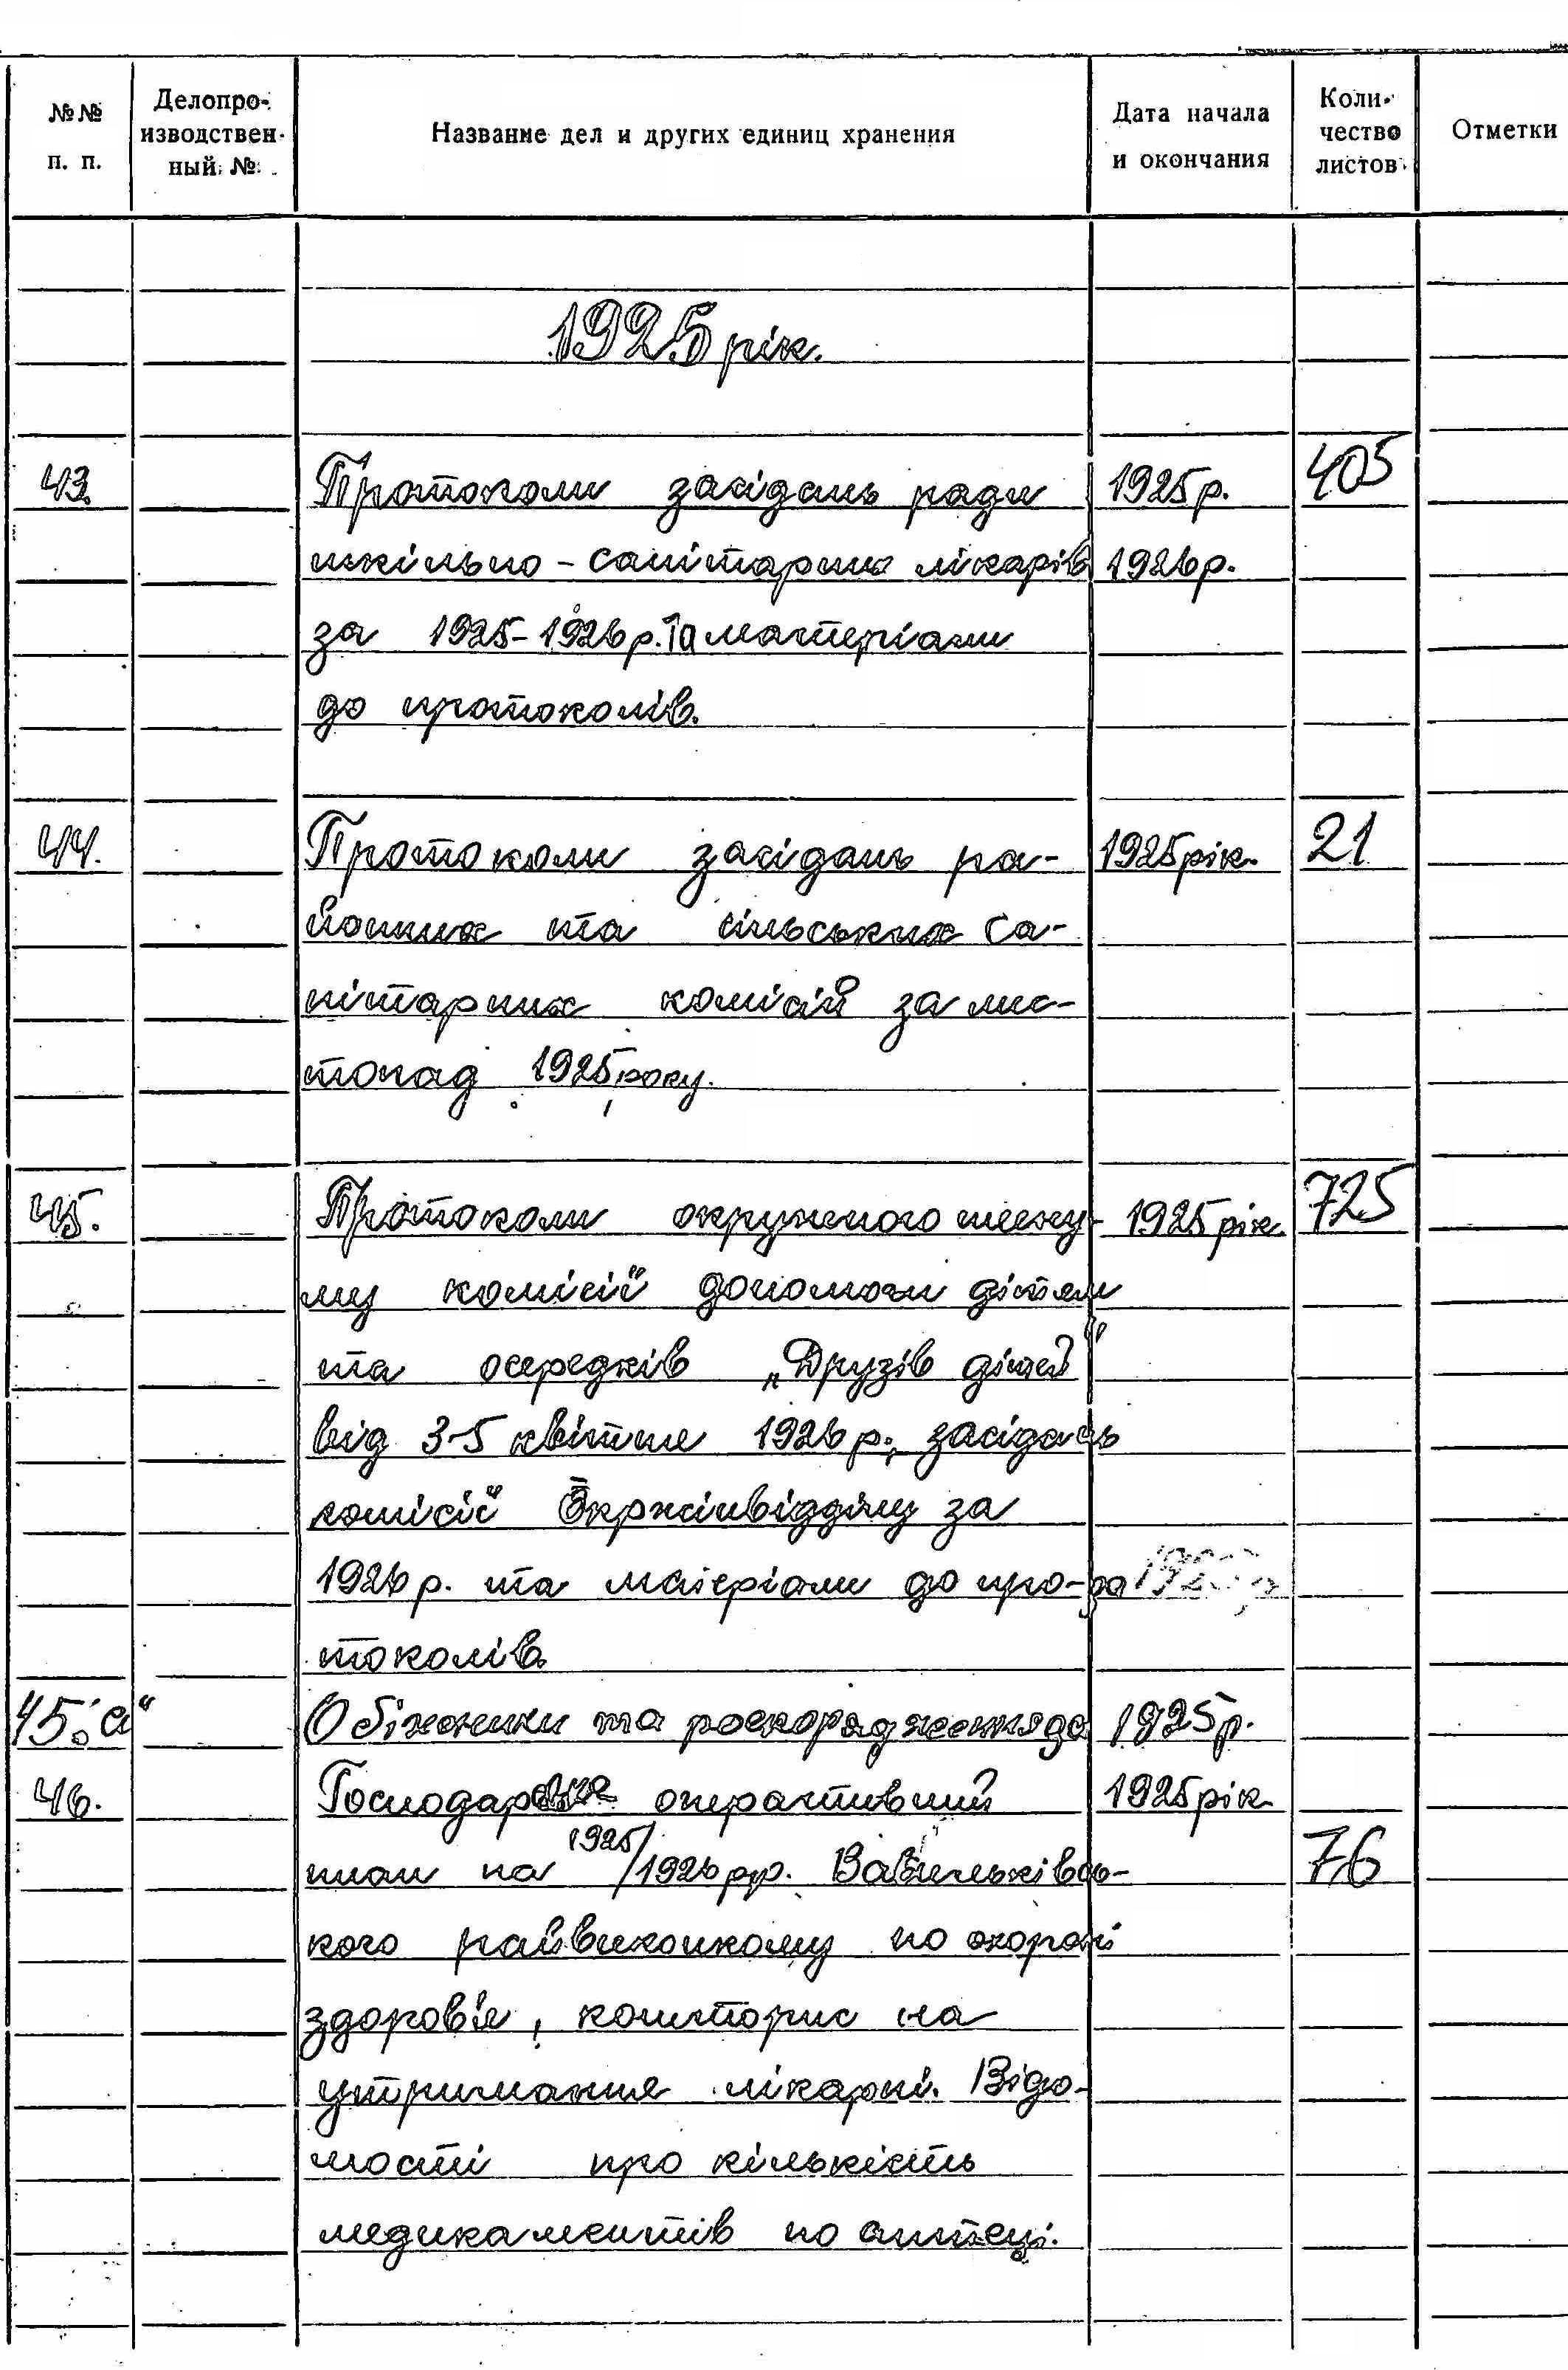 №№ п. п.
Делопро-
изводствен-
ный №
Название дел и других единиц хранения
Дата начала
и окончания
Коли-
чество
листов
Отметки
1925 рік.
43. Протоколи засідань ради 1925 р. 405
шкільно-санітарних лікарів 1926 р.
за 1925-1926 р. Та матеріали
до протоколів.
44. Протоколи засідань ра- 1925 рік. 21
йонних та сільських са-
нітарних комісій за лис-
топад 1925 року.
45. Протоколи окружного плену- 1925 рік. 725
му комісії допомоги дітям
та осередків „Друзів дітей"
від 3-5 квітня 1926 р., засідань
комісії Окржінвідділу за
1926 р. та матеріали до про-
токолів.
45 „а" Обіжники та роспорядження 1925 р.
46. Господарсько оперативний 1925 рік.
план на 1925/1926 рр. Васильківсь- 76
кого райвиконкому по охороні
здоров'я, кошторис на
утримання лікарні. Відо-
мості про кількість
медикаментів по аптеці.